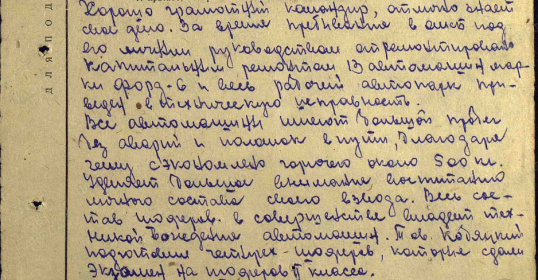 Хорошо грамотный командир, отлично знает
свое дело. За время пребывание в части под
его личным руководством отремонтировано
капитальным ремонтом 13 автомашин мар-
ки форд-6 и весь рабочий автопарк при-
веден в техническую исправность.
Все автомашины имеют большой пробег
без аварий и поломок в пути, благодаря
чему сэкономлено горючего около 500 кг.
Уделяет большое внимание воспитанию
личного состава своего взвода. Весь сос-
тав шоферов. в совершенстве владеет тех-
никой вождение автомашин. Тов. Кобяцкий
подготовил четырех-шоферов, которые сдали
Экзамен на шоферов II класса.
ДЛЯ ПОД